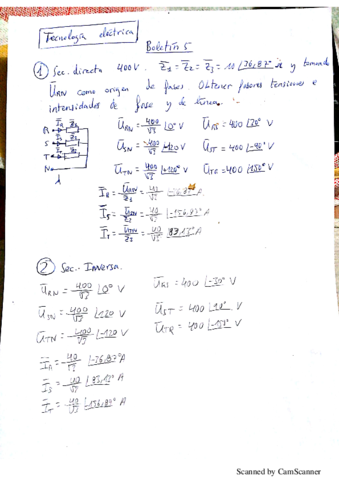 Tecnología eléctrica
Boletín 5
① Sec. directa 400V. Z̄₁ = Z̄₂ = Z̄₃ = 10 |36,87° Ω y tomando
ŪRN como origen de fases. Obtener fasores tensiones e
intensidades de fase y de línea.
R
S
T
N
ŪRN = 400/√3 |0° V ŪRS = 400 |30° V
ŪSN = 400/√3 |-120 V ŪST = 400 |-90° V
ŪTN = 400/√3 |+120° V ŪTR = 400 |150° V
ĪR = ŪRN/Z̄1 = 40/√3 |-36,87° A
ĪS = ŪSN/Z̄2 = 40/√3 |-156,87° A
ĪT = ŪTN/Z̄3 = 40/√3 |83,13° A
② Sec. Inversa.
ŪRN = 400/√3 |0° V ŪRS = 400 |-30° V
ŪSN = 400/√3 |120 V ŪST = 400 |90° V
ŪTN = 400/√3 |-120 V ŪTR = 400 |-150° V
ĪR = 40/√3 |-36,87° A
ĪS = 40/√3 |83,13° A
ĪT = 40/√3 |-156,87° A
Scanned by CamScanner